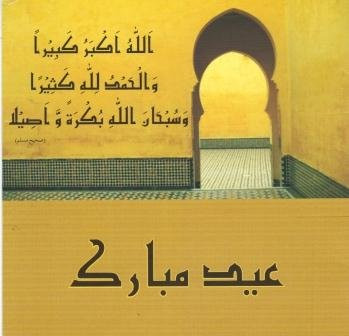 اَللهُ اَكْبَرُ كَبِيْراً
وَالْحَمْدُ لِلّٰهِ كَثِيْرًا
وَسُبْحَانَ اللهِ بُكْرَةً وَّ اَصِيْلًا
(صحيح مسلم)
عيد مبارك